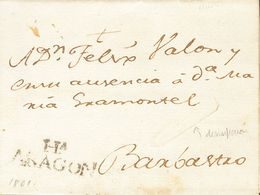 A Dn. Felix Valon y
en su ausencia á da. Ma
ria Gramontel
HA
ARAGON
Barbastro
1801